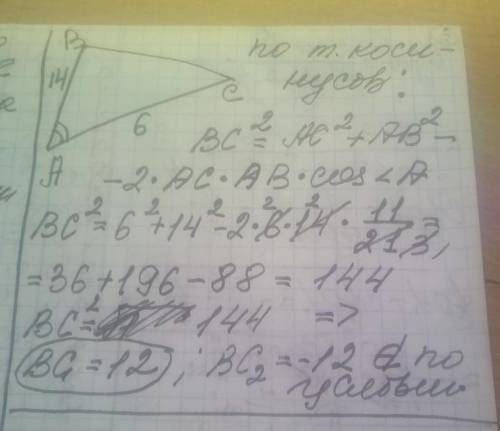 B
по т. коси-
14
нусов:
C
6
BC² = AC² + AB² -
A
-2·AC·AB·cos∠A
BC² = 6² + 14² - 2·6·14· 11/21 =
= 36 + 196 - 88 = 144
BC² = 144 =>
BC₁ = 12 ; BC₂ = -12 ∉ по
условию